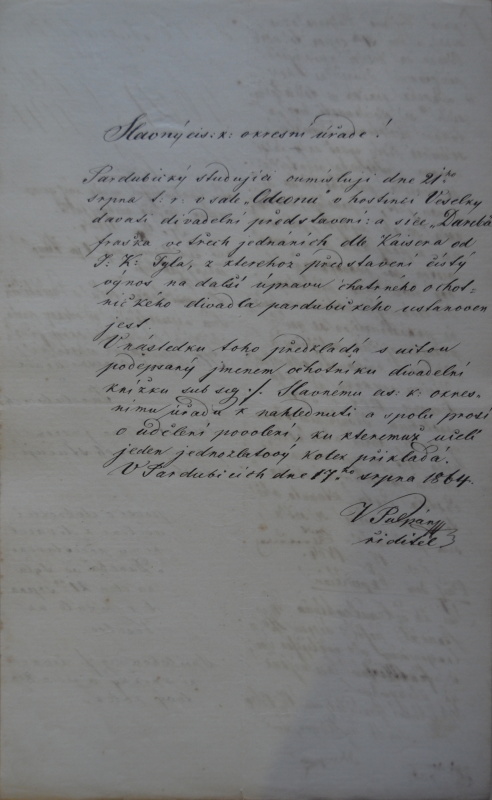 Slavný cis: k: okresní úřade!
Pardubický studující oumisluji dne 21ho
srpna t. r. v sale „Odeonu" v hostinci Veselky
davati divadelní představení: a sice „Darebá
fraška ve třech jednáních dle Kaisera od
J: K: Tyla, z kterehož představení čistý
výnos na další úpravu chatrného ochot-
nického divadla pardubického ustanoven
jest.
V následku toho předkládá s uctou
podepsaný jmenem ochotníku divadelní
knížku sub seg ·/. Slavnému cis: k: okres-
nímu úřadu k nahlednutí a spolu prosí
o udělení povolení, ku kteremuž učeli
jeden jednozlatový kolek přikládá.
V Pardubicích dne 17ho srpna 1864.
řiditel